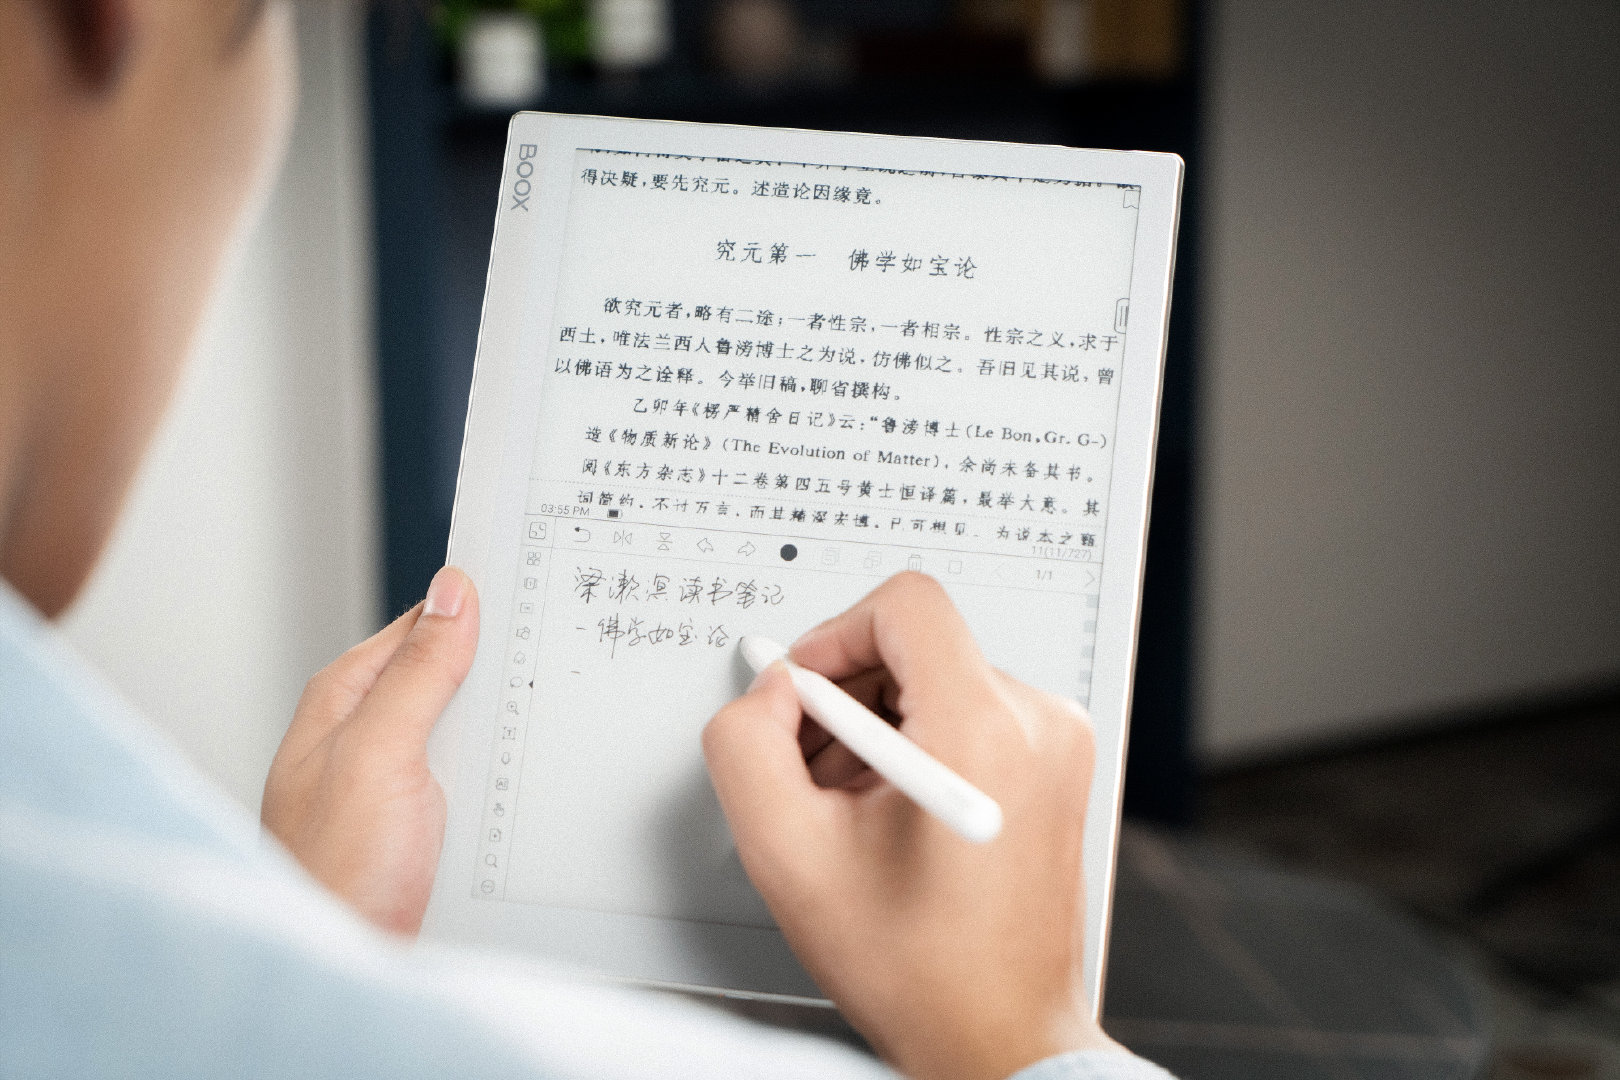 BOOX
得决疑,要先究元。述造论因缘竟。
究元第一 佛学如宝论
欲究元者,略有二途;一者性宗,一者相宗。性宗之义,求于
西土,唯法兰西人鲁滂博士之为说,仿佛似之。吾旧见其说,曾
以佛语为之诠释。今举旧稿,聊省撰构。
乙卯年《楞严精舍日记》云:“鲁滂博士(Le Bon, Gr. G-)
造《物质新论》(The Evolution of Matter),余尚未备其书。
阅《东方杂志》十二卷第四五号黄士恒译篇,最举大意。其
词简约,不过万言,而其精深宏博,已可想见。为说本之甄
03:55 PM
11(11/727)
1/1
梁漱溟读书笔记
- 佛学如宝论
-